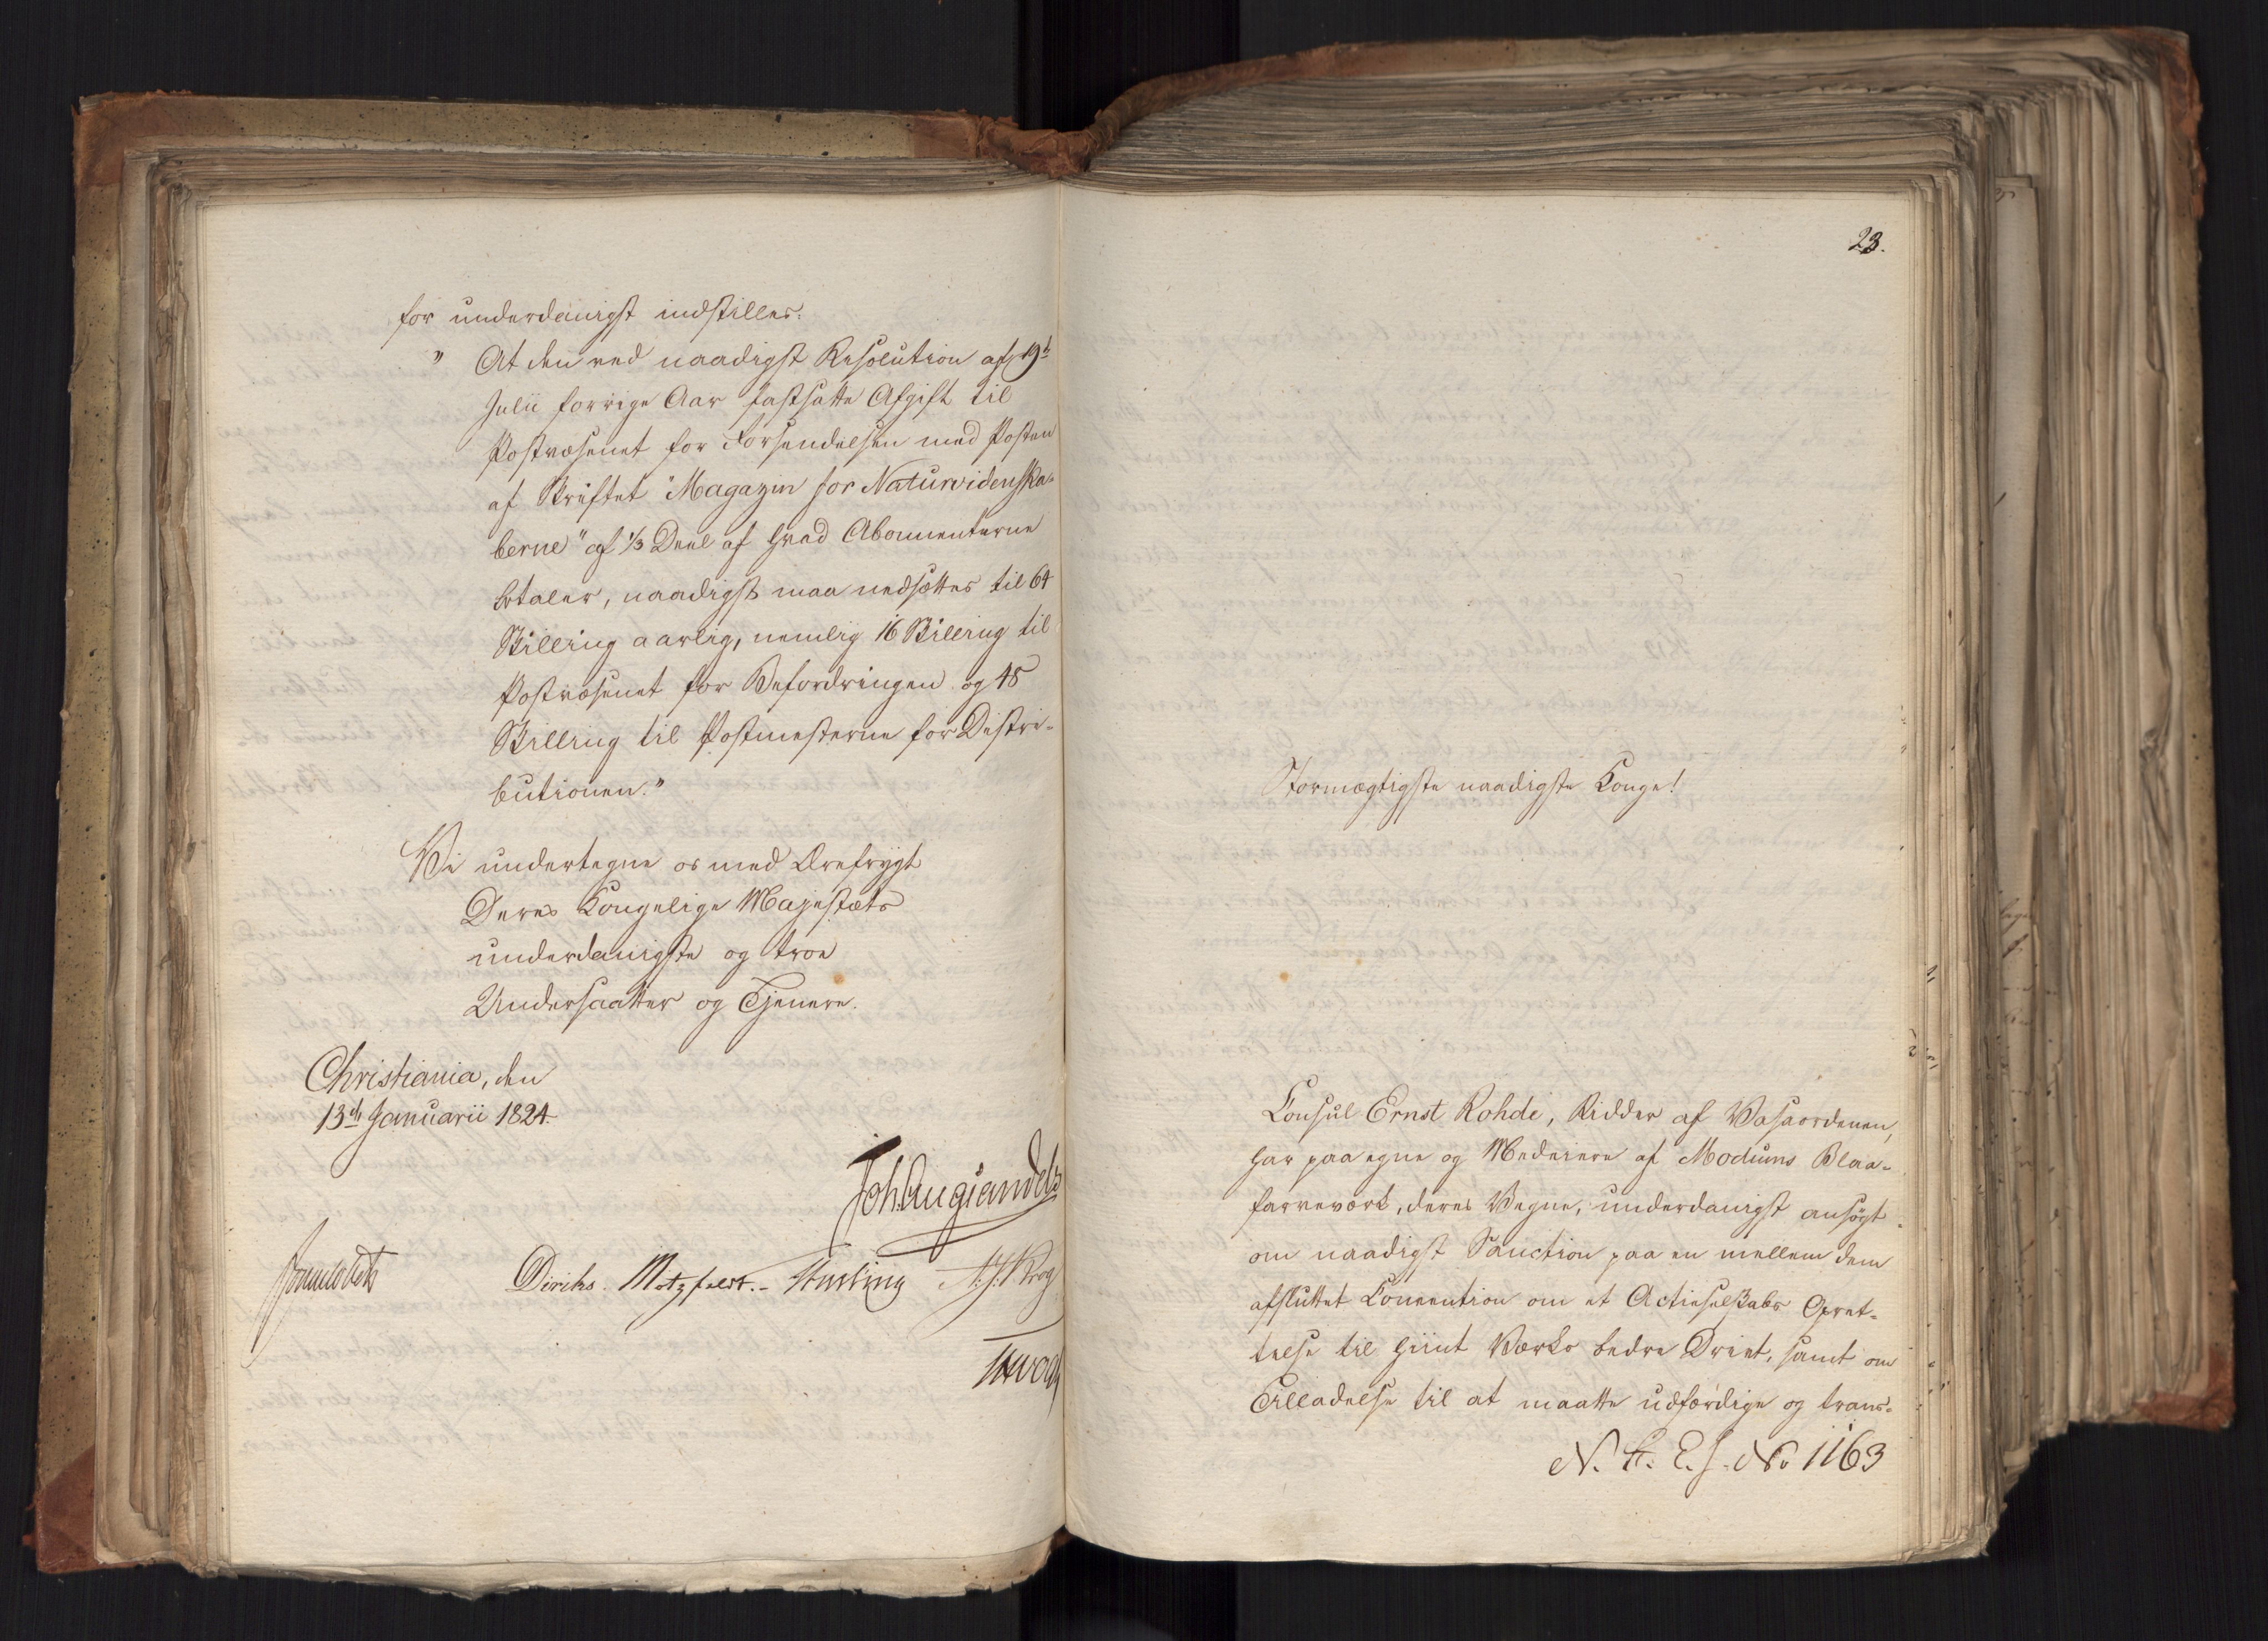 for underdanigst indstilles:
" At den ved naadigst Resolution af 19de
Julii forrige Aar fastsatte Afgift til
Postvæsenet for Forsendelsen med Posten
af Skriftet "Magazin for Naturvidenska-
berne" af 1/3 Deel af hvad Abonnenterne
betaler, naadigst maa nedsættes til 64
Skilling aarlig, nemlig 16 Skilling til
Postvæsenet for Befordringen og 48
Skilling til Postmesterne for Distri-
butionen."
Vi undertegne os med Ærefrygt
Deres Kongelige Majestæts
underdanigste og troe
Undersaatter og Tjenere.
Christiania, den
13de Januarii 1824.
Joh. Aug. Sandels
Sommerhielm Diriks. Motzfeldt.- Hurling A. J. Krog
23.
Stormægtigste naadigste Konge!
Consul Ernst Rohde, Ridder af Vasaordenen,
har paa egne og Medeiere af Modums Blaa-
farveværk, deres Vegne, underdanigst ansøgt
om naadigst Sanction paa en mellem dem
afsluttet Convention om et Actieselskabs Opret-
telse til hiint Værks bedre Drivt, samt om
Tilladelse til at maatte udfærdige og trans-
N. St. E. J. No 1163